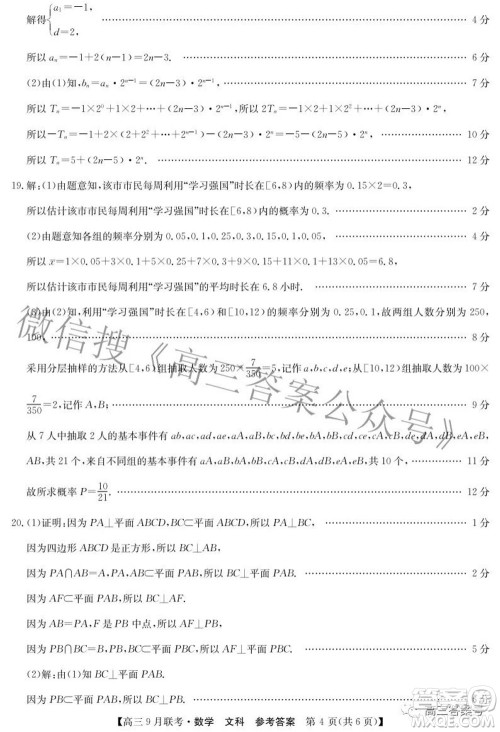 解得{a₁=-1, d=2, ………… 4分
所以 aₙ=-1+2(n-1)=2n-3. ………… 6分
(2)由(1)知,bₙ=aₙ·2ⁿ⁻¹=(2n-3)·2ⁿ⁻¹, ………… 7分
所以 Tₙ=-1×2⁰+1×2+…+(2n-3)·2ⁿ⁻¹,所以 2Tₙ=-1×2+1×2²+…+(2n-3)·2ⁿ,
所以-Tₙ=-1-(2n-3)·2ⁿ+(2²+…+2ⁿ)=-5-(2n-5)·2ⁿ, ………… 10分
所以 Tₙ=5+(2n-5)·2ⁿ. ………… 12分
19.解:(1)由题意知,该市市民每周利用“学习强国”时长在[6,8)内的频率为 0.15×2=0.3,
所以估计该市市民每周利用“学习强国”时长在[6,8)内的概率为 0.3. ………… 2分
(2)由题意知各组的频率分别为 0.05,0.1,0.25,0.3,0.15,0.1,0.05,
所以 x=1×0.05+3×0.1+5×0.25+7×0.3+9×0.15+11×0.1+13×0.05=6.8,
所以估计该市市民每周利用“学习强国”的平均时长在 6.8 小时. ………… 7分
(3)由(2)知,利用“学习强国”时长在[4,6)和[10,12)的频率为 0.25,0.1,故两组人数分别为 250,
100. ………… 8分
采用分层抽样的方法从[4,6)组抽取人数为 250×7/350=5,记作 a,b,c,d,e;从[10,12)组抽取人数为 100×
7/350=2,记作 A,B; ………… 9分
从 7 人中抽取 2 人的基本事件有 ab,ac,ad,ae,aA,aB,bc,bd,be,bA,bB,cd,ce,cA,cB,de,dA,dB,eA,eB,
AB,共 21 个,来自不同组的基本事件有 aA,aB,bA,bB,cA,cB,dA,dB,eA,eB,共 10 个, ………… 11分
故所求概率 P=10/21. ………… 12分
20.(1)证明:因为 PA⊥平面 ABCD,BC⊂平面 ABCD,所以 PA⊥BC, ………… 1分
因为四边形 ABCD 是正方形,所以 BC⊥AB,
因为 PA∩AB=A,PA,AB⊂平面 PAB,所以 BC⊥平面 PAB. ………… 2分
因为 AF⊂平面 PAB,所以 BC⊥AF.
因为 PA=AB,F 是 PB 中点,所以 AF⊥PB,
因为 PB∩BC=B,PB,BC⊂平面 PBC,所以 AF⊥平面 PBC. ………… 5分
(2)解:由(1)知 BC⊥平面 PAB,
因为 PB⊂平面 PAB,所以 BC⊥PB.
【高三 9 月联考·数学 文科 参考答案 第 4 页(共 6 页)】
微信搜《高三答案公众号》
高三答案号